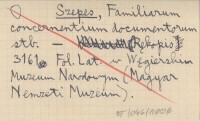 Szepes, Familiarum
concernentium documentorum
stb. – Rękopis
3161. Fol. Lat. w Węgierskim
Muzeum Narodowym (Magyar
Nemzeti Muzeum).